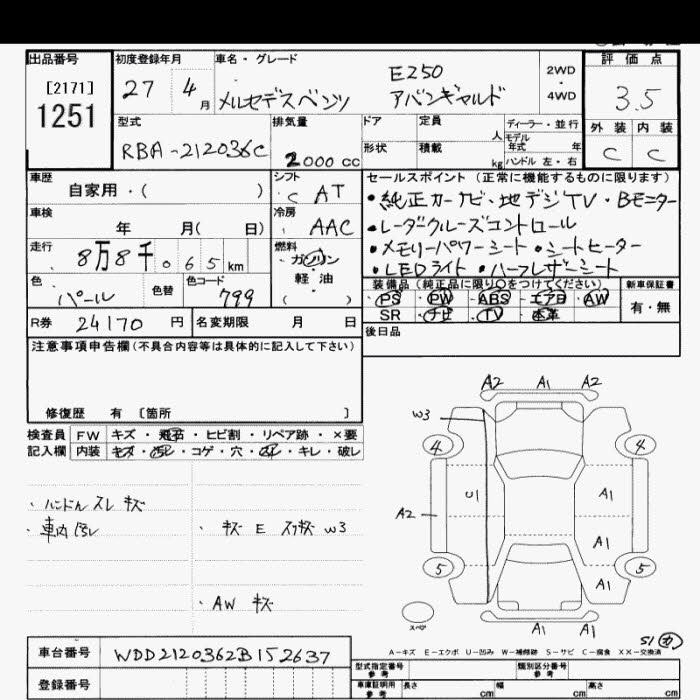 出品番号
[2171]
1251
初度登録年月
27 4月
車名・グレード
メルセデスベンツ
E250
アバンギャルド
2WD
・
4WD
評価点
3.5
外装 内装
C C
型式
RBA-212036C
排気量
2000cc
ドア
定員 人
形状
積載 kg
ディーラー・並行
モデル年式 年
ハンドル 左・右
車歴
自家用・( )
シフト
C AT
車検
年 月( 日)
冷房
AAC
走行
8万8千065km
燃料
ガソリン
・
軽油
( )
色
パール
色替
色コード
799
R券 24170円
名変期限 月 日
セールスポイント(正常に機能するものに限ります)
・純正カーナビ・地デジTV・Bモニター
・レーダクルーズコントロール
・メモリーパワーシート・シートヒーター
・LEDライト・ハーフレザーシート
装備品(純正品に限り○をつけてください)
PS PW ABS エアB AW
SR ナビ TV 本革
新車保証書
有・無
後日品
注意事項申告欄(不具合内容等は具体的に記入して下さい)
修復歴 有 [箇所 ]
検査員記入欄
FW キズ・飛石・ヒビ割・リペア跡・×要
内装 キズ・汚レ・コゲ・穴・スレ・キレ・破レ
・ハンドルスレ キズ
・車内汚レ
・キズ E スリキズ W3
・AW キズ
A2 A1 A2
W3
4 4
U1 A1
A2
A1
5 A1 5
スペア
A1 A1
S1 カ
A-キズ E-エクボ U-凹み W-補修跡 S-サビ C-腐食 XX-交換済
車台番号
WDD2120362B152637
登録番号
型式指定番号
参考
類別区分番号
参考
車庫証明用
参考
長さ cm
幅 cm
高さ cm